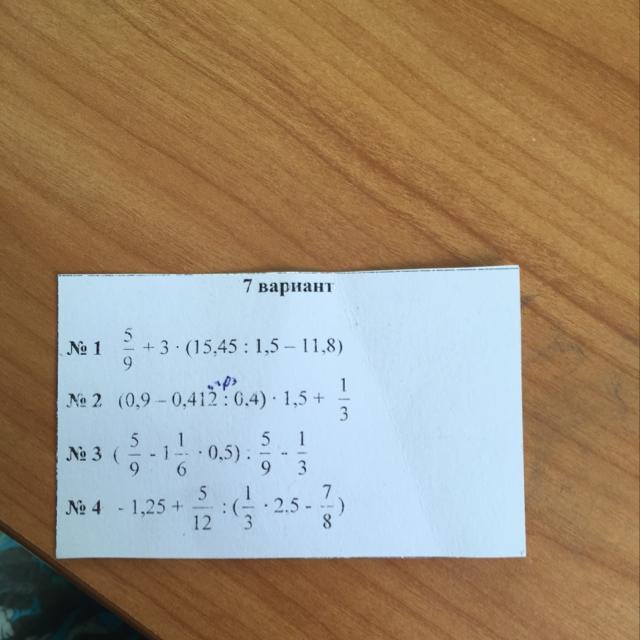 7 вариант
№ 1 5/9 + 3 · (15,45 : 1,5 – 11,8)
№ 2 (0,9 – 0,412 : 0,4) · 1,5 + 1/3
№ 3 ( 5/9 - 1 1/6 · 0,5) : 5/9 - 1/3
№ 4 - 1,25 + 5/12 : ( 1/3 · 2,5 - 7/8 )